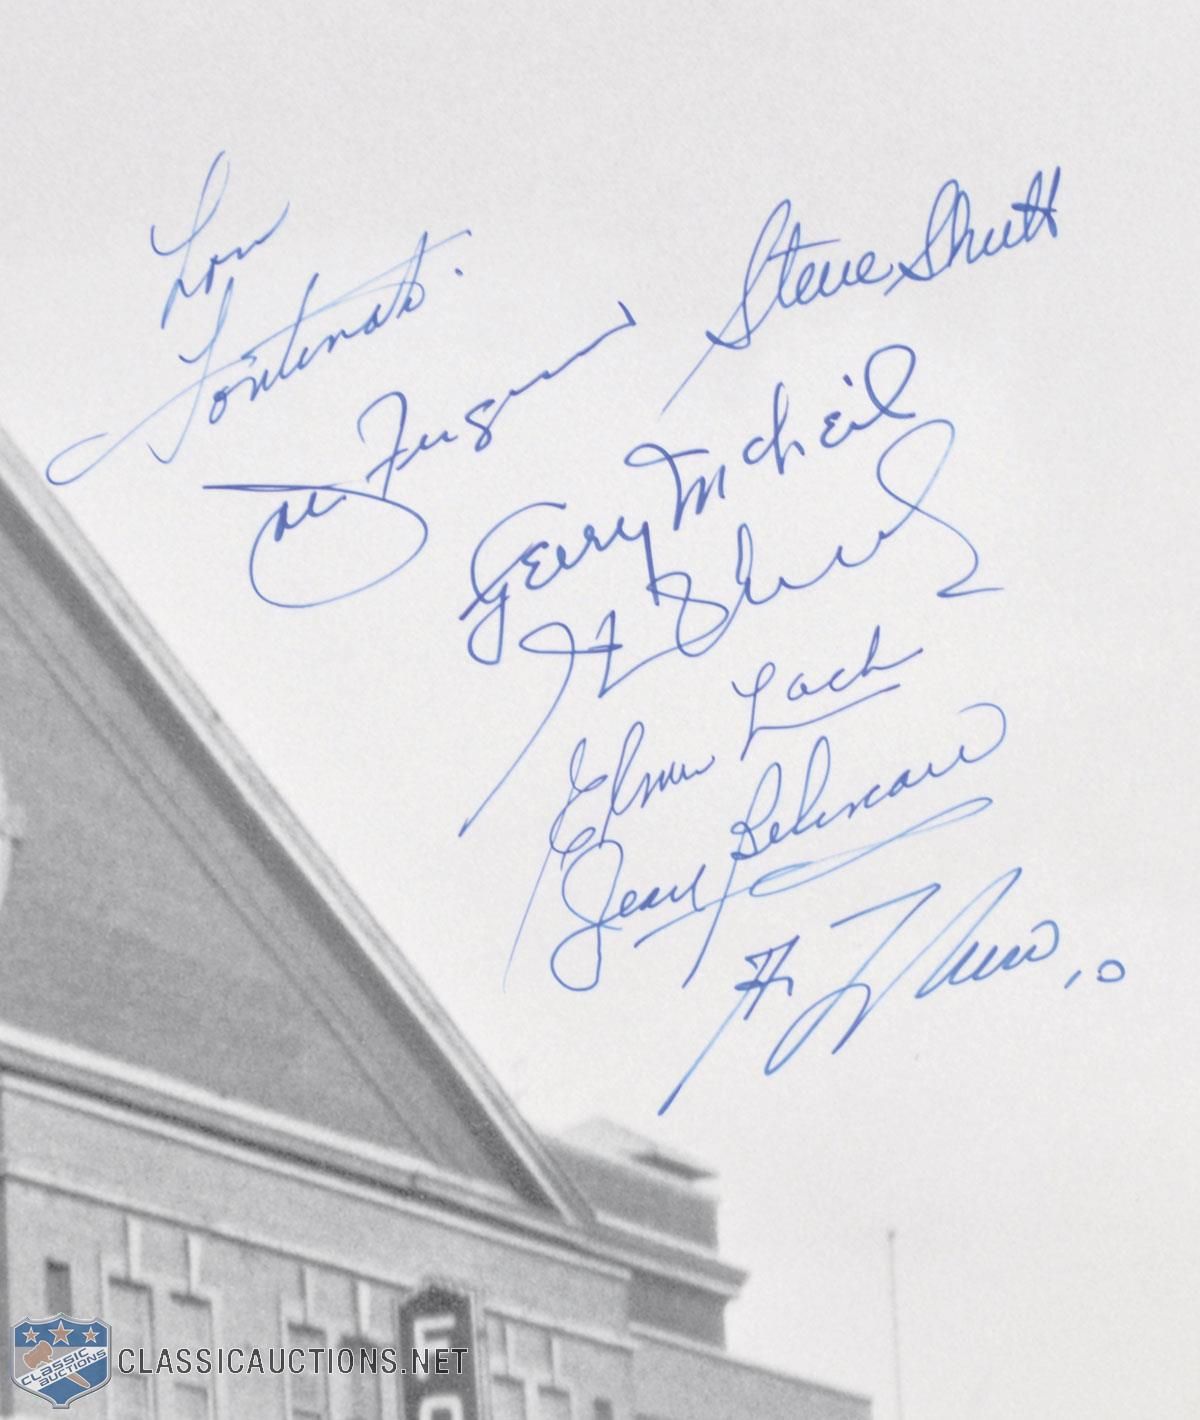 Lou
Fontinato
Steve Shutt
J. Ferguson
Gerry McNeil
Elmer Lach
Jean Beliveau
G. Lafleur 10
FO
CLASSIC
AUCTIONS
CLASSICAUCTIONS.NET